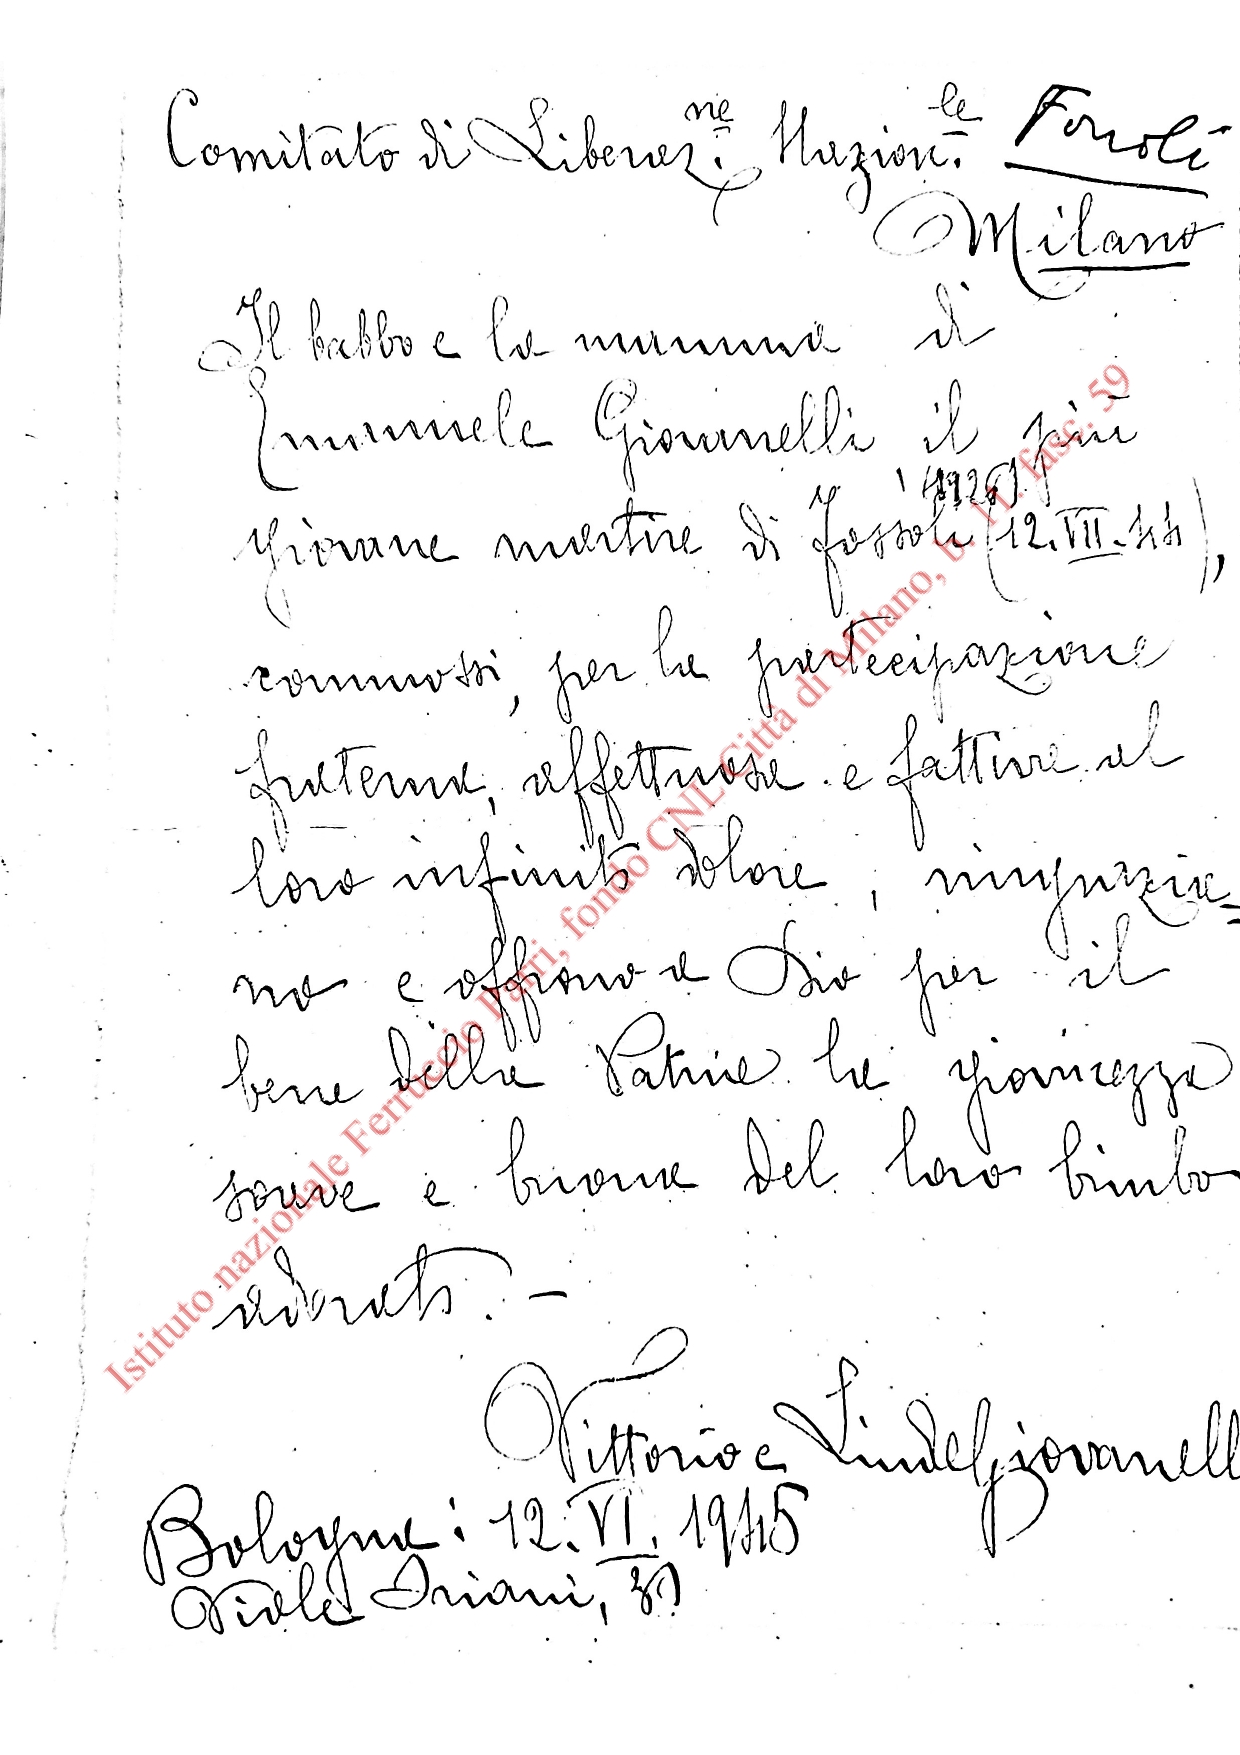 Comitato di Liberaz.ne Nazion.le Fossoli
Milano
Il babbo e la mamma di
Emanuele Giovanelli il più
giovane martire di Fossoli (12.VII.44),
commossi, per la partecipazione
fraterna, affettuosa e fattiva al
loro infinito dolore, ringrazia=
no e offrono a Dio per il
bene della Patria la giovinezza
soave e buona del loro bimbo
adorato. –
Vittorio e Linda Giovanell
Bologna: 12.VI.1945
Viale Oriani,
Istituto nazionale Ferruccio Parri, fondo CNL Città di Milano, b. 11. fasc. 59